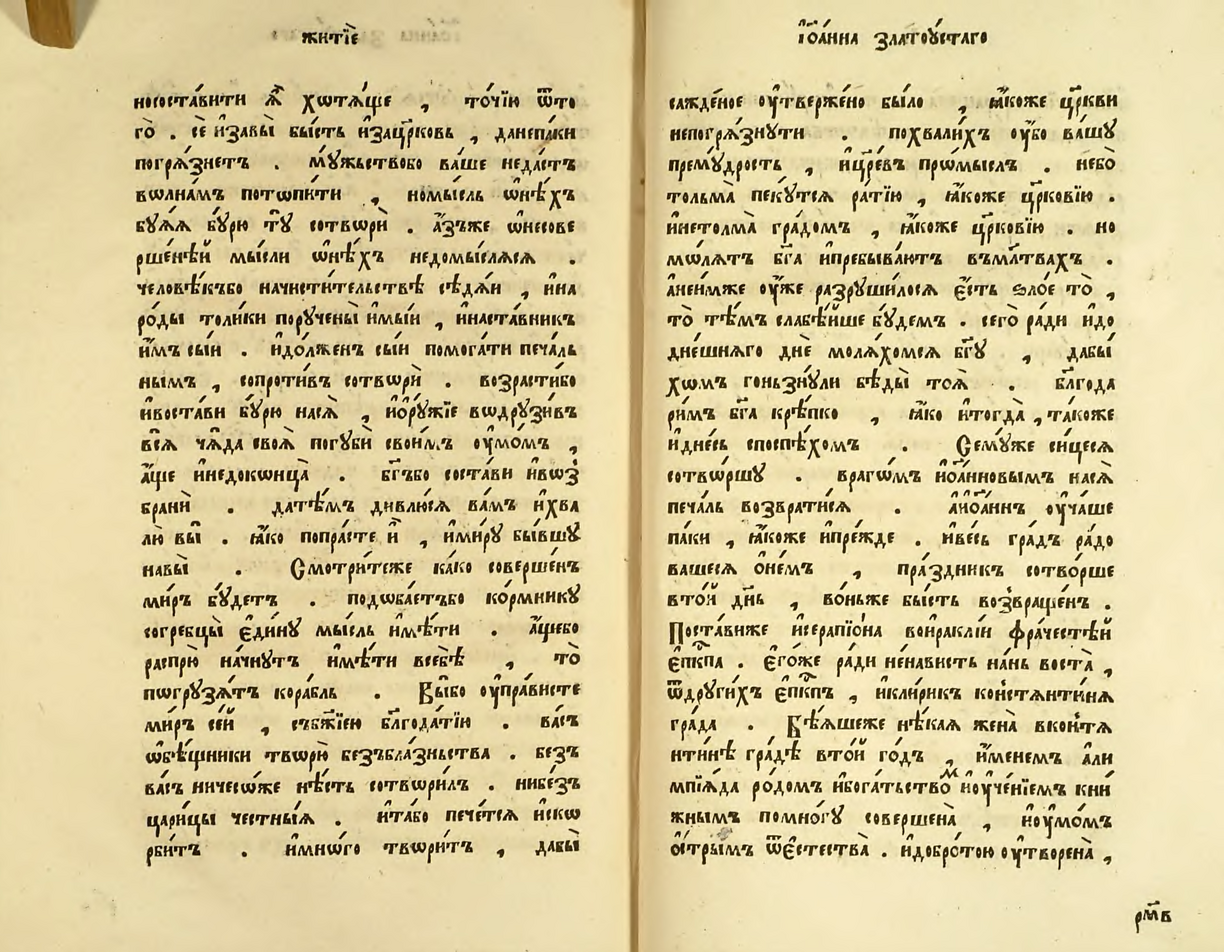 житїѐ
нососта́вити ѧ҆̀ хотѧ́ще , то́чїю ѿто
го̀ . сѐ и҆зꙗвѝ бы́сть и҆зацр҃ковь , данепа́ки
погрѧ́знетъ . мꙋ́жьствобо ва́ше неда́стъ
вѡлна́мъ потѡпи́ти , номы́сль ѡ҆нѣ́хъ
бꙋ́ѧѧ бꙋ́рю тꙋ̀ сотворѝ . а҆́зъже ѡ҆несове
рше́нѣй мы́сли ѡ҆нѣ́хъ недомы́слѧсѧ .
человѣ́къбо начисти́тельствѣ сѣдѧ́й , и҆на
ро́ды толи́ки порꙋчены̀ и҆мы́и , и҆наста́вникъ
и҆̀мъ сы́и . и҆до́лженъ сы́и помога́ти печа́ль
нымъ , сопроти́въ сотворѝ . возрасти́бо
и҆воста́ви бꙋ́рю насѧ̀ , и҆ѻ҆рꙋ́жїе вѡдрꙋзи́въ
всѧ̀ чѧ́да своѧ̀ погꙋбѝ свои́мъ ᲂу҆мо́мъ ,
а҆́ще и҆недоконца̀ . бг҃ъбо соста́ви и҆воз
бранѝ . датѣ́мъ дивлю́сѧ ва́мъ и҆хва
лю̀ вы̀ . ꙗ҆́ко попра́сте и҆̀ , и҆ми́рꙋ бы́вшꙋ
навы̀ . Смотри́тсже ка́ко соверше́нъ
ми́ръ бꙋ́детъ . подоба́етъбо ко́рмникꙋ
согребцы̀ є҆ди́нꙋ мы́сль и҆мѣ́ти . а҆́щебо
распрю̀ начнꙋ́тъ и҆мѣ́ти всебѣ̀ , то̀
погрꙋзѧ́тъ кора́бль . Вы́бо ᲂу҆пра́висте
ми́ръ се́й , събж҃їею благода́тїю . ва́съ
ѡ҆бѣ́щники творю̀ безъбла́зньства . безъ
ва́съ ничесѡ́же нѣ́сть сотвори́лъ . нибе́зъ
цари́цы че́стныѧ . и҆та́бо пече́тсѧ и҆ско
рби́тъ . и҆мно́го твори́тъ , дабы̀
і҆ѡа́нна златоꙋ́стаго
сажде́ное ᲂу҆твержено бы́ло , ꙗ҆́коже цр҃кви
непогрѧ́знꙋти . похвали́хъ ᲂу҆́бо ва́шꙋ
премꙋ́дрость , и҆цр҃е́въ про́мыслъ . небо̀
тольма̀ пекꙋ́тсѧ ра́тїю , ꙗ҆́коже цр҃ковїю .
и҆нетолма̀ гра́домъ , ꙗ҆́коже цр҃ковїю . но
мо́лѧтъ бг҃а и҆пребыва́ютъ въмл҃твахъ .
а҆неимже ᲂу҆́же разрꙋши́лосѧ є҆́сть ѕло́е то̀ ,
то̀ тѣ́мъ слабѣ́йше бꙋ́демъ . сего̀ ра́ди и҆до
дне́шнѧго днѐ молѧ́хомсѧ бг҃ꙋ , дабы́
хѡмъ гоньзнꙋ́ли бѣды̀ тоѧ̀ . бл҃года
ри́мъ бг҃а крѣ́пко , ꙗ҆́ко и҆тогда̀ , та́коже
и҆дне́сь споспѣ́хомъ . Семꙋ́же си́цесѧ
сотво́ршꙋ . враго́мъ и҆ѻ҆а́нновымъ насѧ̀
печа́ль возврати́сѧ . а҆и҆ѻ҆а́ннъ ᲂу҆ча́ше
па́ки , ꙗ҆́коже и҆пре́жде . и҆ве́сь гра́дъ ра́до
вашесѧ ѻ҆не́мъ , пра́здникъ сотво́рше
вто́й дн҃ь , во́ньже бы́сть возвраще́нъ .
Поста́виже и҆серапїо́на вои҆ра́клїи фра́честѣй
є҆пкпа . є҆го́же ра́ди не́нависть на́нь воста̀ ,
ѿдрꙋги́хъ є҆пкпъ , и҆кли́рикъ коньстѧнти́нѧ
гра́да . Бѣ́ѧшеже нѣ́каѧ жена̀ вконьстѧ
нти́нѣ гра́дѣ вто́й го́дъ , и҆́менемъ а҆ли
мпїѧ́да ро́домъ и҆бога́тьствомъ и҆ᲂу҆че́нїемъ кни́
жнымъ помно́гꙋ соверше́на , и҆ᲂу҆мо́мъ
ѻ҆́стрымъ ѿє҆стества̀ . и҆добро́тою ᲂу҆творена̀ ,
рм҃в